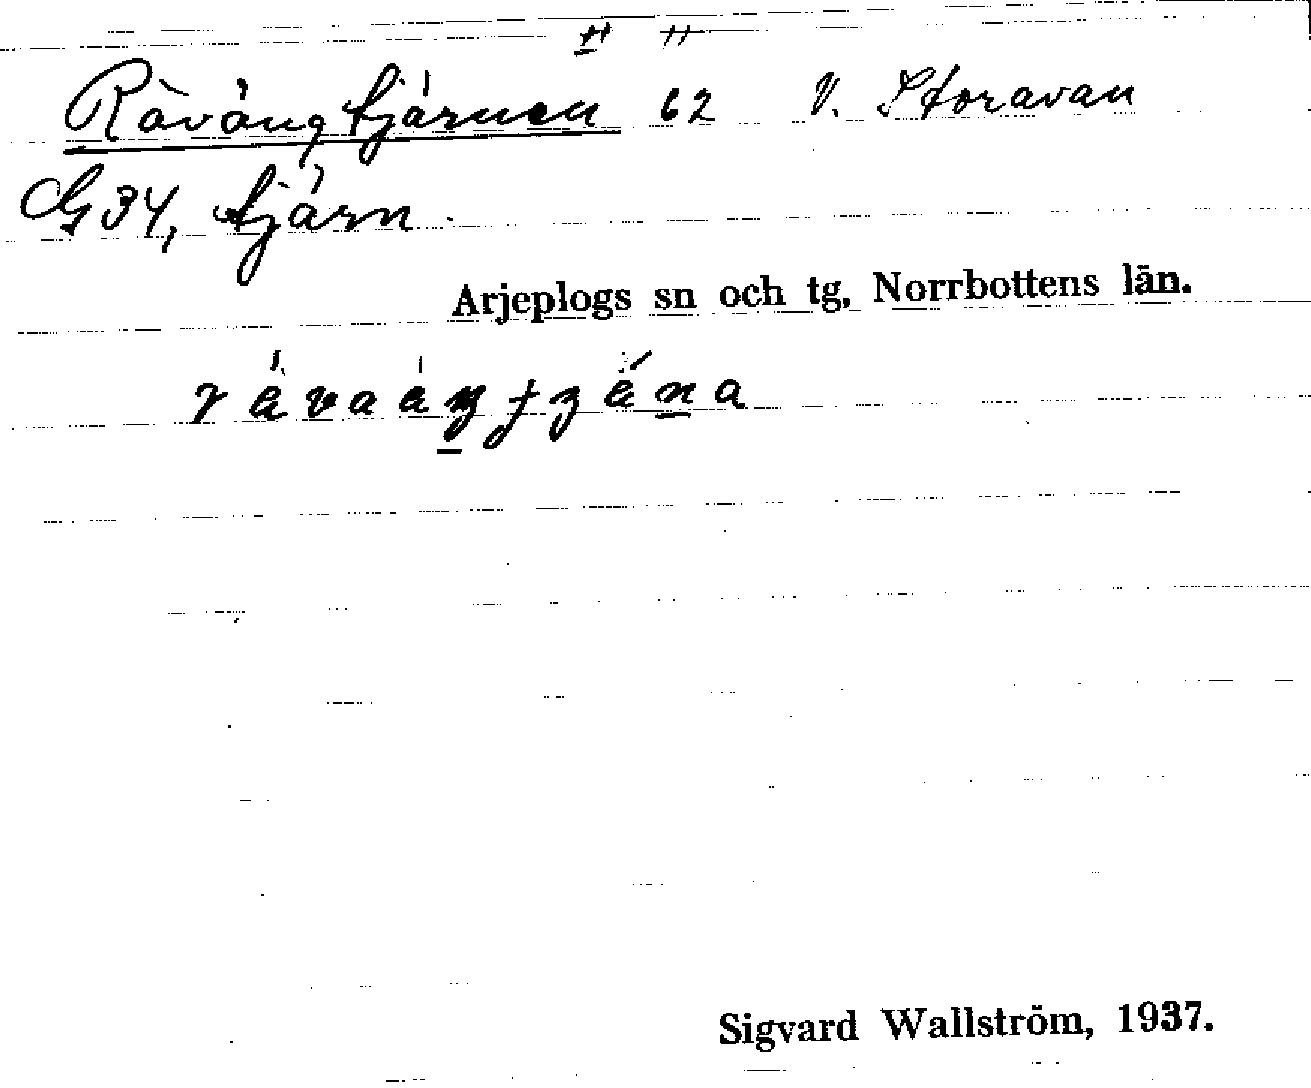 Rävängtjärnen 62 V. Storavan
G34, tjärn.
Arjeplogs sn och tg, Norrbottens län.
Sigvard Wallström, 1937.